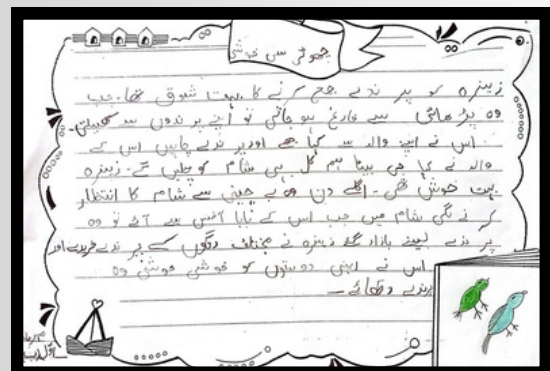 چھوٹی سی خوشی
زنیرہ کو پرندے جمع کرنے کا بہت شوق تھا۔ جب
وہ پڑھائی سے فارغ ہو جاتی تو اپنے پرندوں سے کھیلتی۔
اس نے اپنے والد سے کہا مجھے اور پرندے چاہیں اس کے
والد نے کہا جی بیٹا ہم کل ہی شام کو چلیں گے۔ زنیرہ
بہت خوش تھی۔ اگلے دن وہ بے چینی سے شام کا انتظار
کرنے لگی شام میں جب اس کے بابا آفس سے آئے تو وہ
پرندے لینے بازار گئے زنیرہ نے مختلف رنگوں کے پرندے خریدے اور
اس نے اپنی دوستوں کو خوشی خوشی وہ
پرندے دکھائے۔